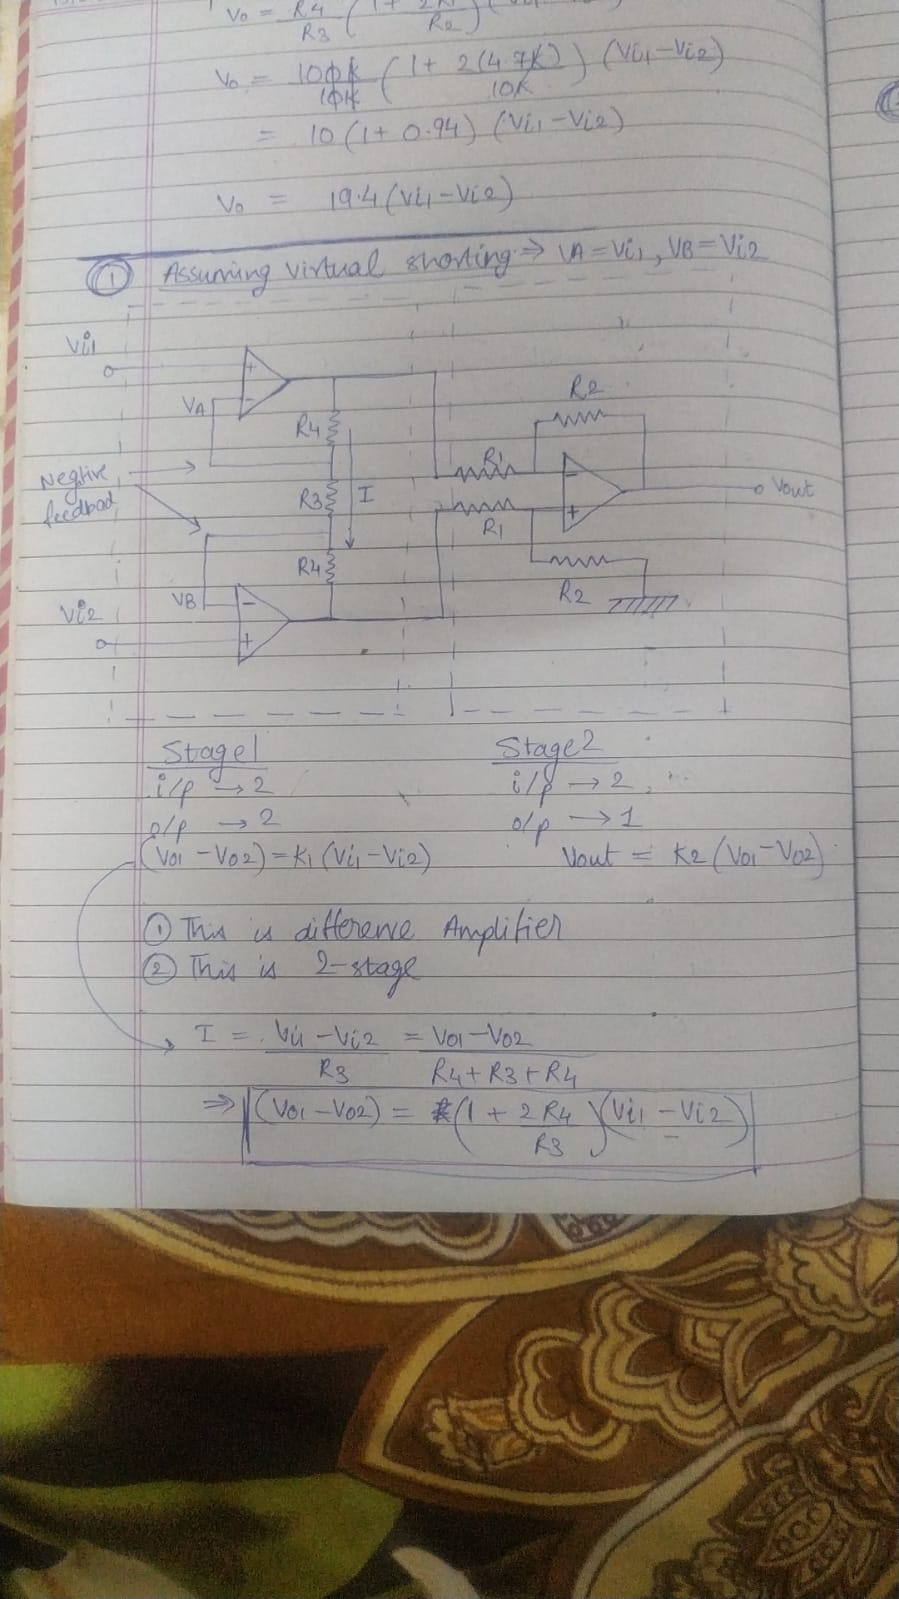 Vo = R4/R3 (1 + 2R1/R2) (
Vo = 100K/10K (1 + 2(4.7K)/10K) (Vi1 - Vi2)
= 10 (1 + 0.94) (Vi1 - Vi2)
Vo = 19.4 (Vi1 - Vi2)
① Assuming virtual shorting ⇒ VA = Vi1, VB = Vi2
Vi1
+
-
VA
R4
R2
Negtive
feedbad
R3
I
R1
-
+
Vout
R1
R4
R2
VB
Vi2
-
+
Stage1
Stage2
i/p → 2
i/p → 2
o/p → 2
o/p → 1
(Vo1 - Vo2) = K1 (Vi1 - Vi2)
Vout = K2 (Vo1 - Vo2)
① This is difference Amplifier
② This is 2-stage
I = Vi1 - Vi2/R3 = Vo1 - Vo2/R4 + R3 + R4
⇒ (Vo1 - Vo2) = (1 + 2R4/R3)(Vi1 - Vi2)